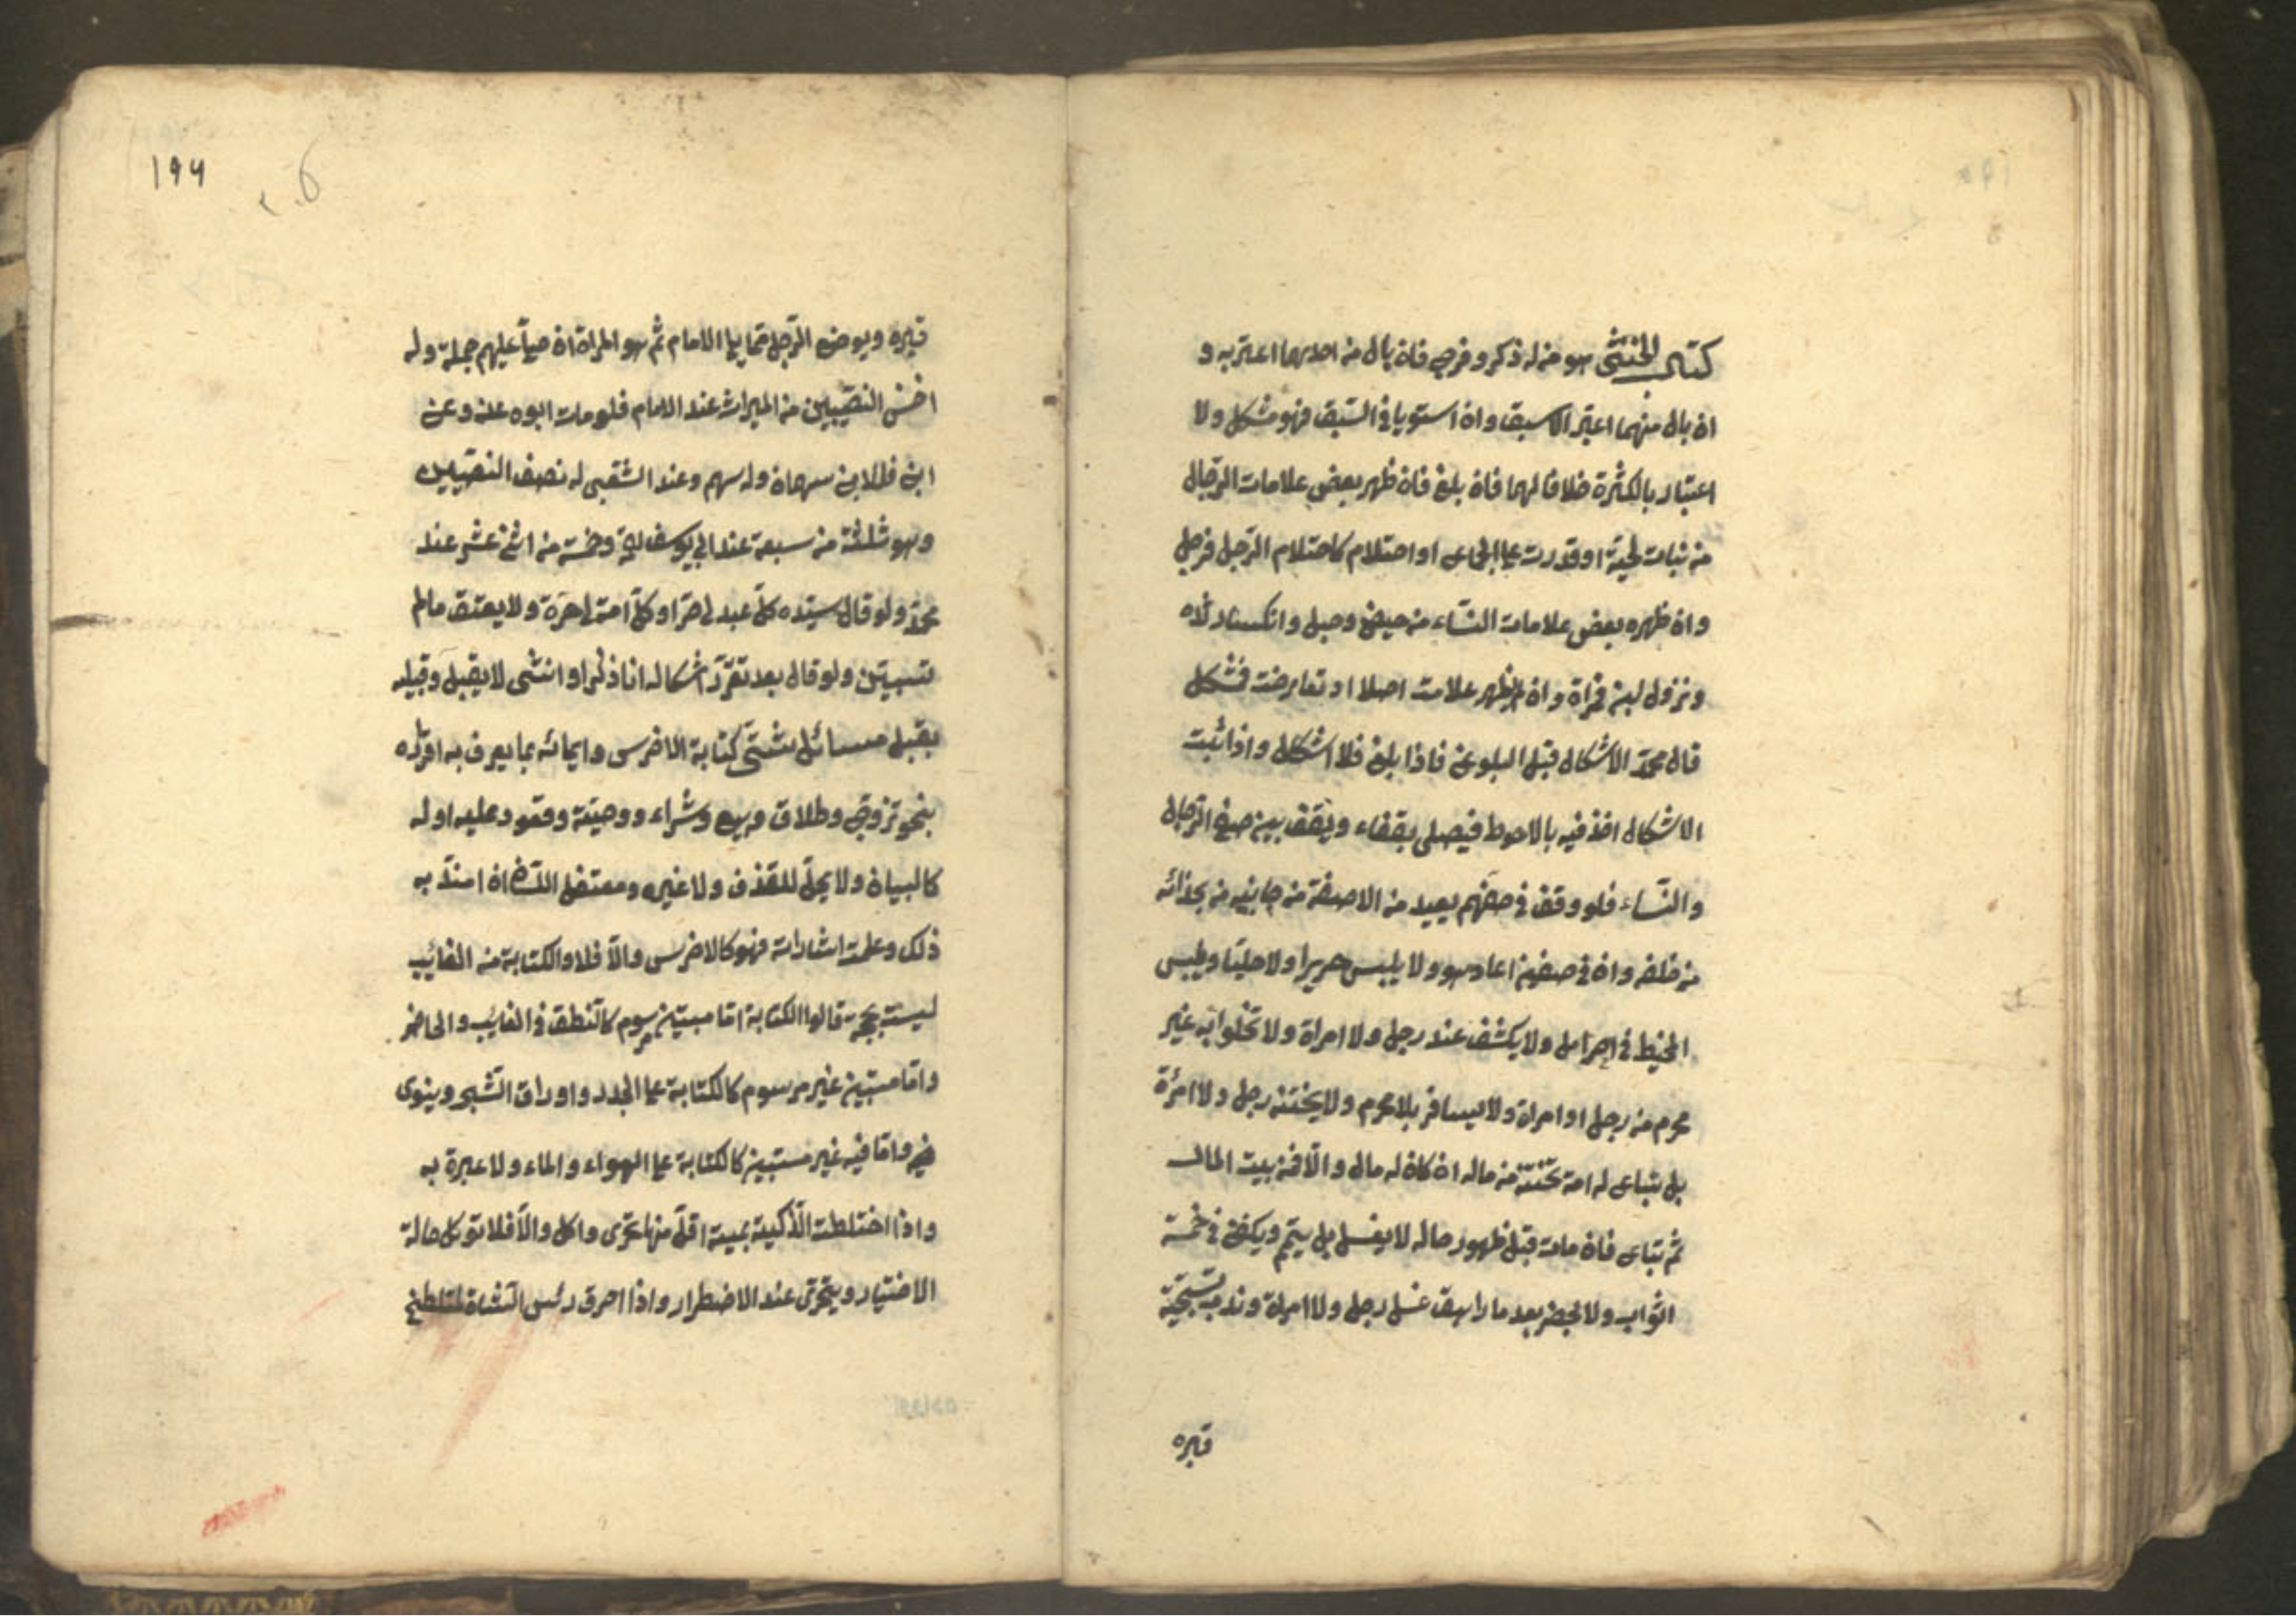 كتاب الخنثى هو من له ذكر وفرج فان بال من احدهما اعتبر به و
ان بال منهما اعتبر الاسبق وان استويا في السبق فهو مشكل ولا
اعتبار بالكثرة خلافا لهما فان بلغ فان ظهر بعض علامات الرجال
من نبات لحية او قدرت على الجماع او احتلام كاحتلام الرجل فرجل
وان ظهره بعض علامات النساء من حيض وحبل وانكسار ثداه
ونزول لبن فمراة وان لم يظهر علامت اصلا او تعارضت فمشكل
قال محمد الاشكال قبل البلوغ فاذا بلغ فلا اشكال واذا ثبت
الاشكال اخذ فيه بالاحوط فيصلى بقناع ويقف بين صف الرجال
والنساء فلو وقف في صفهم يعيد من الاصفة من جانبيه من بحذائه
من خلفه وان في صفهن اعاد هو ولا يلبس حريرا ولا حليا ويلبس
المخيط في احرامه ولا يكشف عند رجل ولا امراة ولا تخلوا به غير
محرم من رجل او امراة ولا يسافر بلا محرم ولا يختنه رجل ولا امرأة
بل يتباع له امة تختنه من ماله ان كان له مال والا فمن بيت المال
ثم تباع فان مات قبل ظهور حاله لا يغسل بل يتيم ويكفن في خمسة
اثواب ولا يحضر بعد ما راهق غسل رجل ولا امراة وندب تسجية
قبره
194
قبره ويوضع الرجل مما يلى الامام ثم هو المراة اذ صلى عليهم جملة وله
اخس النصيبين من الميراث عند الامام فلو مات ابوه عنه وعن
ابن فللابن سهمان وله سهم وعند الشعبى له نصف النصيبين
وهو ثلثة من سبعة عند ابي يوسف وخمسة من اثنى عشر عند
محمد ولو قال سيده كل عبد لى حر او كل امة لى حرة ولا يعتق مالم
تستبين ولو قال بعد تقرر اشكاله انا ذكر او انثى لا يقبل وقبله
يقبل مسائل شتى كتابة الاخرس وايمائه بما يعرف به اقراره
بنحو تزوج وطلاق وبيع وشراء ووصية وقود عليه او له
كالبيان ولا يحد للقذف ولا غيره ومعتقل اللسان ان امتد به
ذلك وعلمت اشاراته فهو كالاخرس والا فلا والكتابة من الغائب
ليست بحجة قالوا الكتابة اما مستبين مرسوم كالنطق في الغائب والحاضر
واما مستبين غير مرسوم كالكتابة على الجدر واوراق الشجر وينوى
فيه واما فيه غير مستبين كالكتابة على الهواء والماء ولا عبرة به
واذا اختلطت الذكية بميتة اقل منها تحرى واكل والا فلا تؤكل حالة
الاختيار ويتحرى عند الاضطرار واذا احرق رئس الشاة المتلطخ